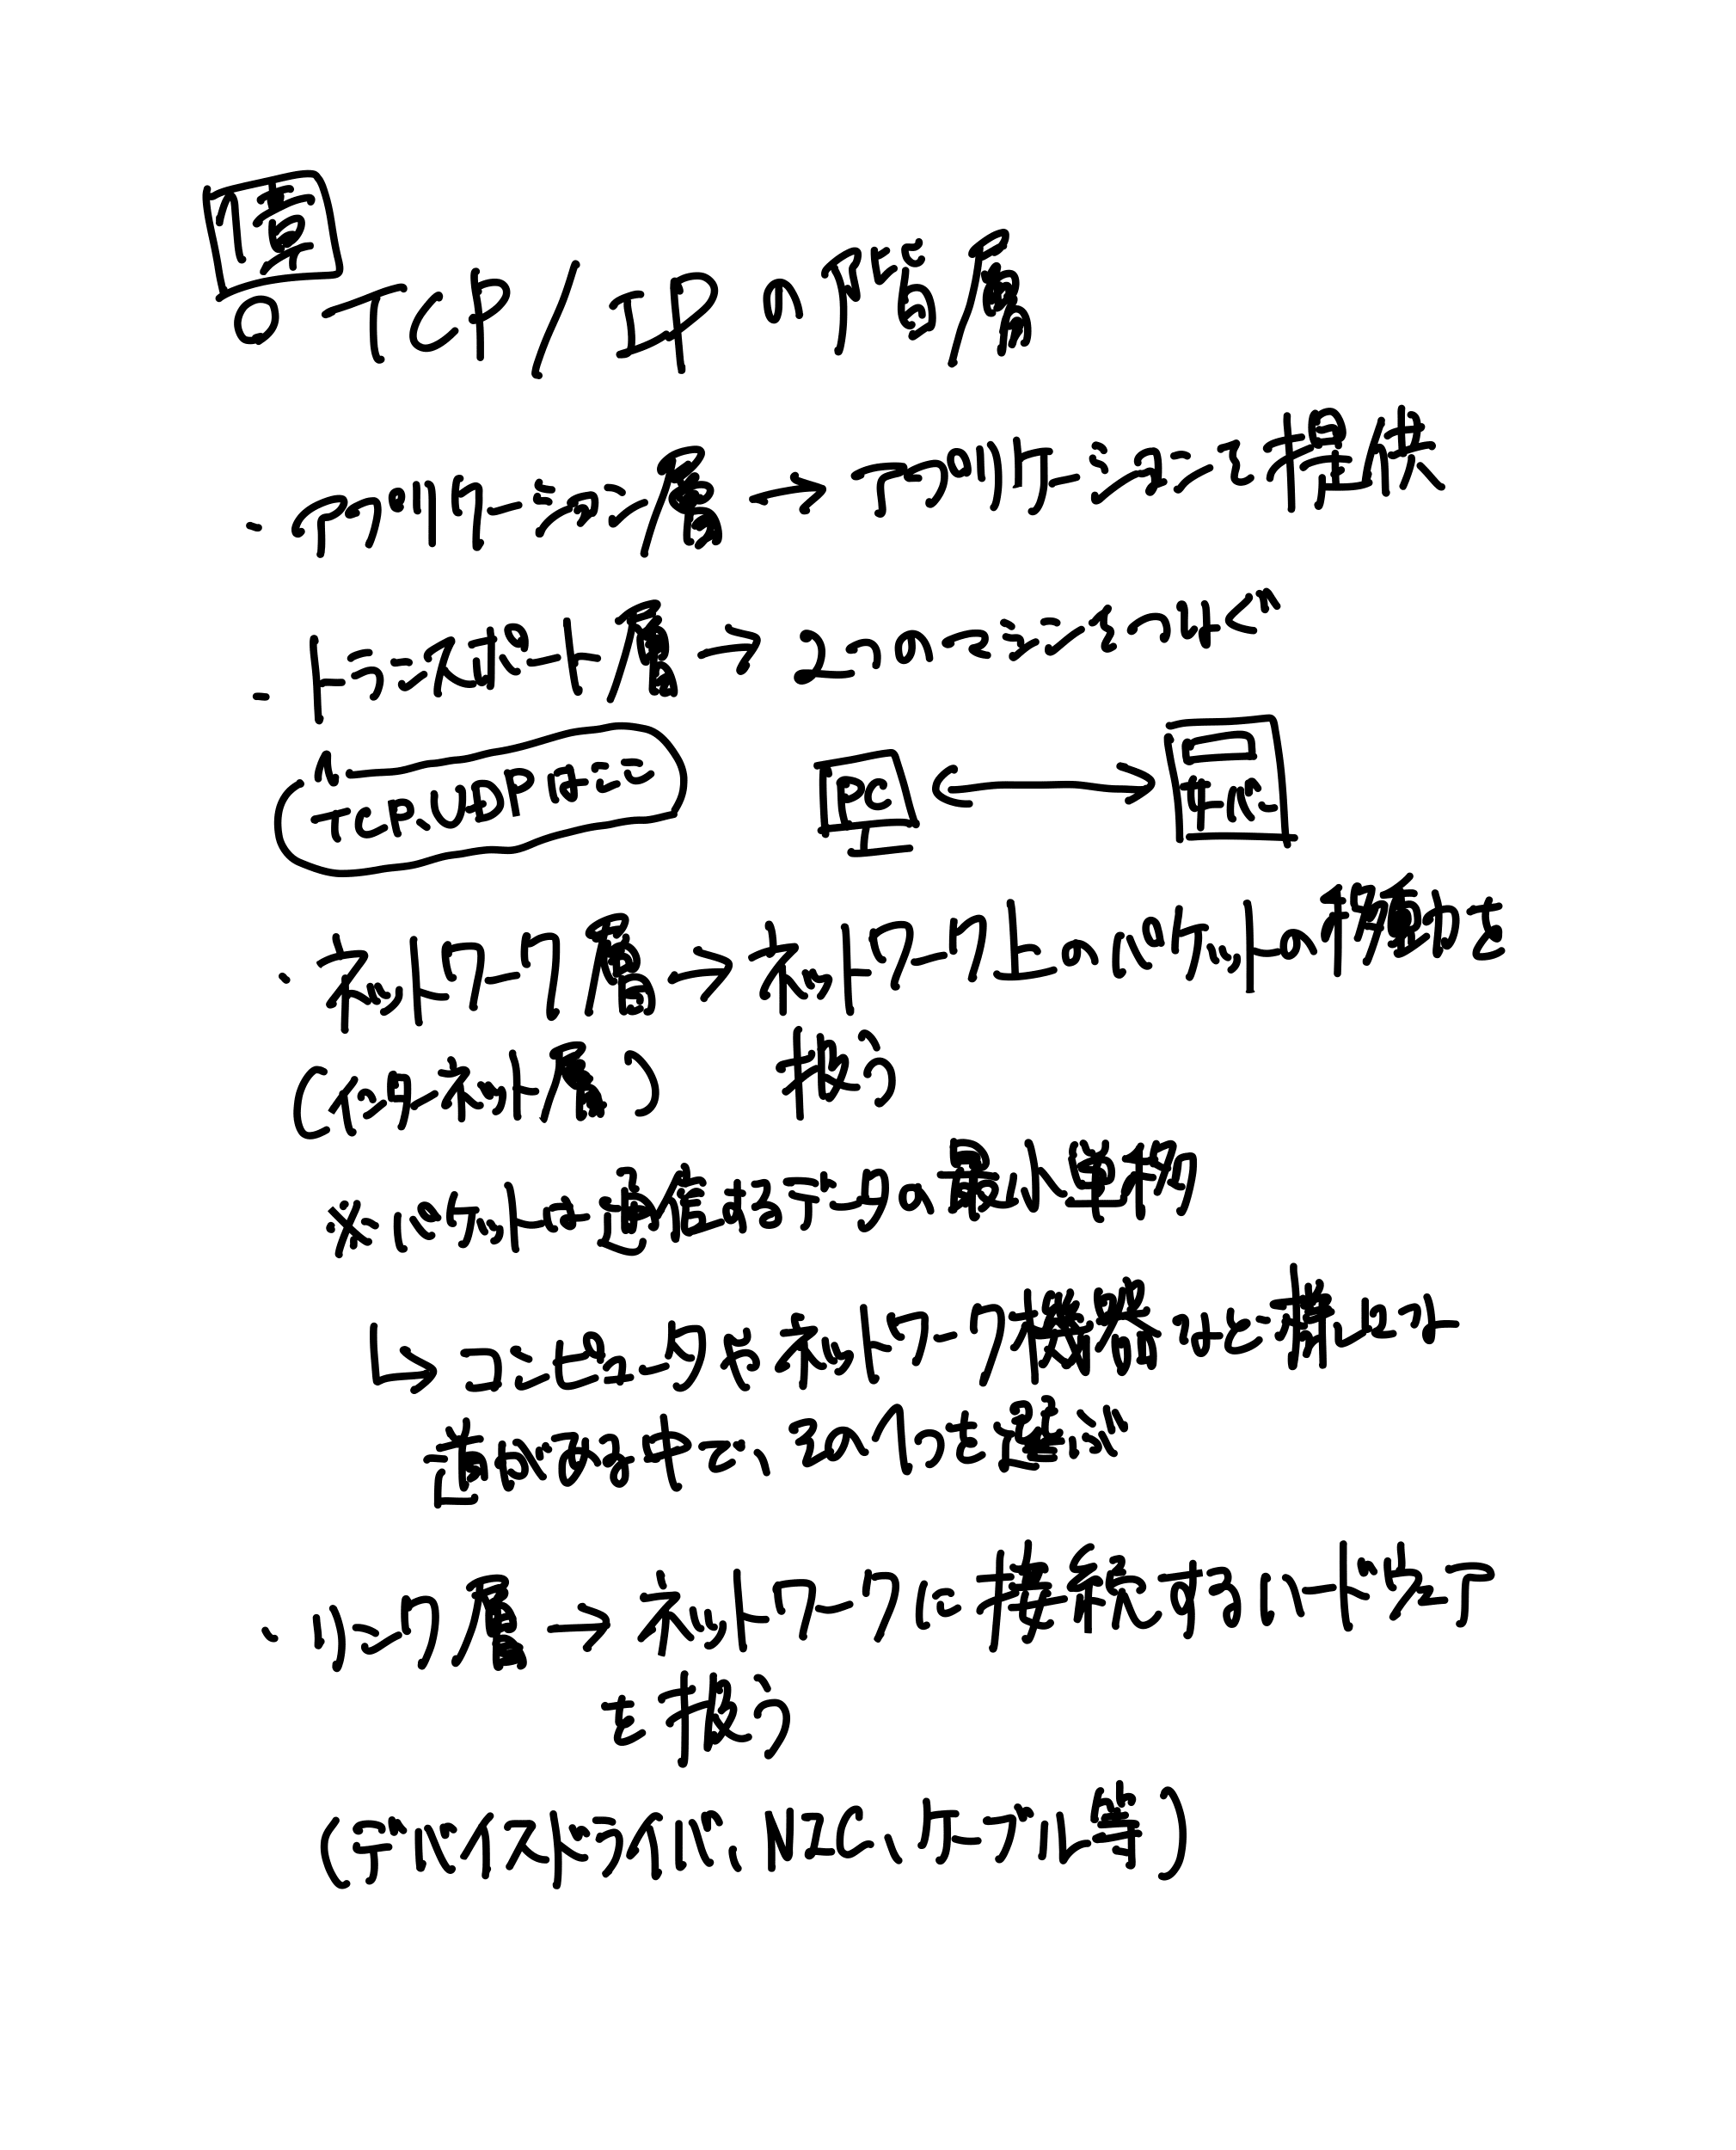 1章
○ TCP/IPの階層
・アプリケーション層→アプリケーションを提供
・トランスポート層→2つのマシンをつなぐ
TCP、UDPはここ
PC
ネットワーク層→ネットワーク上のパケットの移動を
(インターネット層) 扱う
※パケットは通信するデータの最小単位
↳コンピュータやネットワーク機器など様々な
道がある中で、その1つを選ぶ
・リンク層→ネットワークに接続するハードウェア
を扱う
(デバイスドライバ、NIC、ケーブル等)